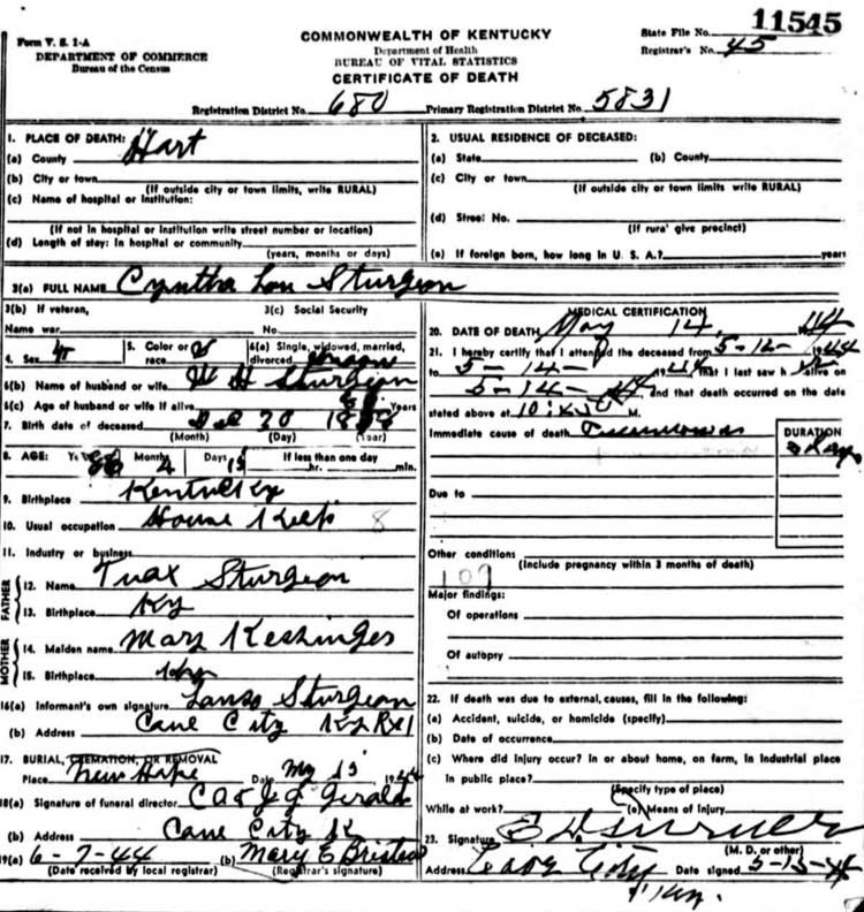 11545
Form V. S. 1-A
DEPARTMENT OF COMMERCE
Bureau of the Census
COMMONWEALTH OF KENTUCKY
Department of Health
BUREAU OF VITAL STATISTICS
CERTIFICATE OF DEATH
State File No.
Registrar's No. 45
Registration District No. 680 Primary Registration District No. 5831
1. PLACE OF DEATH:
(a) County Hart
(b) City or town
(If outside city or town limits, write RURAL)
(c) Name of hospital or institution:
(If not in hospital or institution write street number or location)
(d) Length of stay: In hospital or community
(years, months or days)
2. USUAL RESIDENCE OF DECEASED:
(a) State (b) County
(c) City or town
(If outside city or town limits write RURAL)
(d) Street No.
(If rural give precinct)
(e) If foreign born, how long in U. S. A.? years
3(a) FULL NAME Cyntha Lou Sturgeon
3(b) If veteran,
Name war
3(c) Social Security
No.
4. Sex
5. Color or
race
6(a) Single, widowed, married,
divorced
6(b) Name of husband or wife W H Sturgeon
6(c) Age of husband or wife if alive Years
7. Birth date of deceased
(Month) (Day) (Year)
8. AGE: Months 4 Days If less than one day
hr. min.
9. Birthplace Kentucky
10. Usual occupation House Keep 8
11. Industry or business
FATHER
12. Name Sturgeon
13. Birthplace Ky
MOTHER
14. Maiden name Mary
15. Birthplace Ky
16(a) Informant's own signature Sturgeon
(b) Address Cave City Ky Rx1
17. BURIAL, CREMATION, OR REMOVAL
Place New Hope Date My 15 1944
18(a) Signature of funeral director
(b) Address Cave City K
19(a) 6-7-44 (b) Mary E Bristow
(Date received by local registrar) (Registrar's signature)
MEDICAL CERTIFICATION
20. DATE OF DEATH May 14, 44
21. I hereby certify that I attended the deceased from 5-12- 1944
to 5-14- 1944, that I last saw h alive on
5-14- 44 and that death occurred on the date
stated above at M.
Immediate cause of death
DURATION
Due to
Other conditions
(Include pregnancy within 3 months of death)
107
Major findings:
Of operations
Of autopsy
22. If death was due to external causes, fill in the following:
(a) Accident, suicide, or homicide (specify)
(b) Date of occurrence
(c) Where did injury occur? In or about home, on farm, in industrial place
in public place?
(Specify type of place)
While at work? (e) Means of Injury
23. Signature
(M. D. or other)
Address Cave City Date signed 5-15-44
Ky.